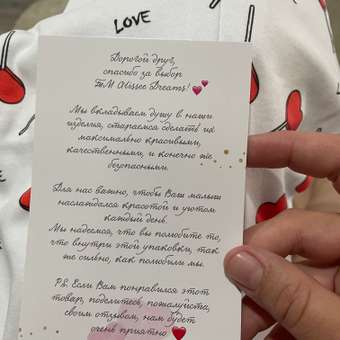 LOVE
Дорогой друг,
спасибо за выбор
ТМ Alissee Dreams!
Мы вкладываем душу в наши
изделия, стараемся сделать их
максимально красивыми,
качественными, и конечно же
безопасными.
Для нас важно, чтобы Ваш малыш
наслаждался красотой и уютом
каждый день.
Мы надеемся, что вы полюбите то,
что внутри этой упаковки, так
же сильно, как полюбили мы.
P.S. Если Вам понравился этот
товар, поделитесь, пожалуйста,
своим отзывом, нам будет
очень приятно